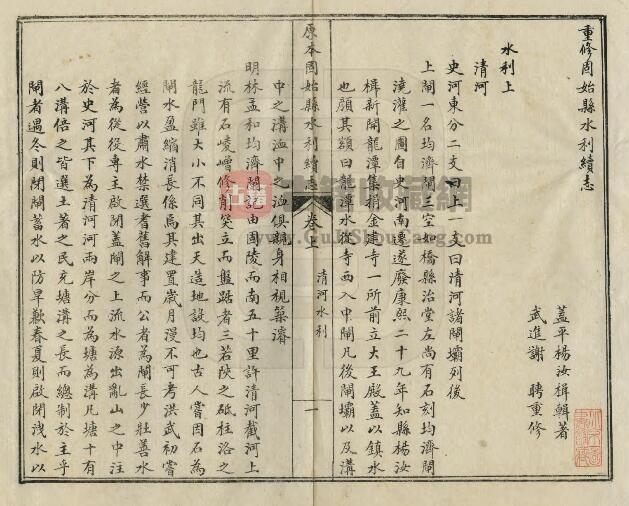 重修固始縣水利續志
蓋平楊汝楫輯著
武進謝聘重修
水利上
清河
史河東分二支曰上一支曰清河諸閘壩列後
上閘一名均濟閘三空如橋縣治堂左尚有石刻均濟閘
澆灌之圖自史河南遷遂廢康熙二十九年知縣楊汝
楫新開龍潭集捐金建寺一所前立大王殿蓋以鎮水
也顏其額曰龍潭水從寺西入中閘凡後閘壩以及溝
原本固始縣水利續志
卷上
清河水利
一
中之溝洫中之洫俱親身相視築濬
明林孟和均濟閘記由固陵而南五十里許清河截河上
流有石崚嶒修削突立而盤踞者三若陜之砥柱洛之
龍門雖大小不同其出天造地設均也古人嘗因石為
閘水盈縮消長係焉其建置歲月漫不可考洪武初嘗
經營以肅水禁選耆舊解事而公者為閘長少壯善水
者為從役專主啟閉蓋閘之上流水源出亂山之中注
於史河其下為清河河兩岸分而為塘為溝凡塘十有
八溝倍之皆選土著之民充塘溝之長而總制於主乎
閘者遇冬則閉閘蓄水以防旱歉春夏則啟閉淺水以
古籍收藏網
www.GuJiShouCang.com